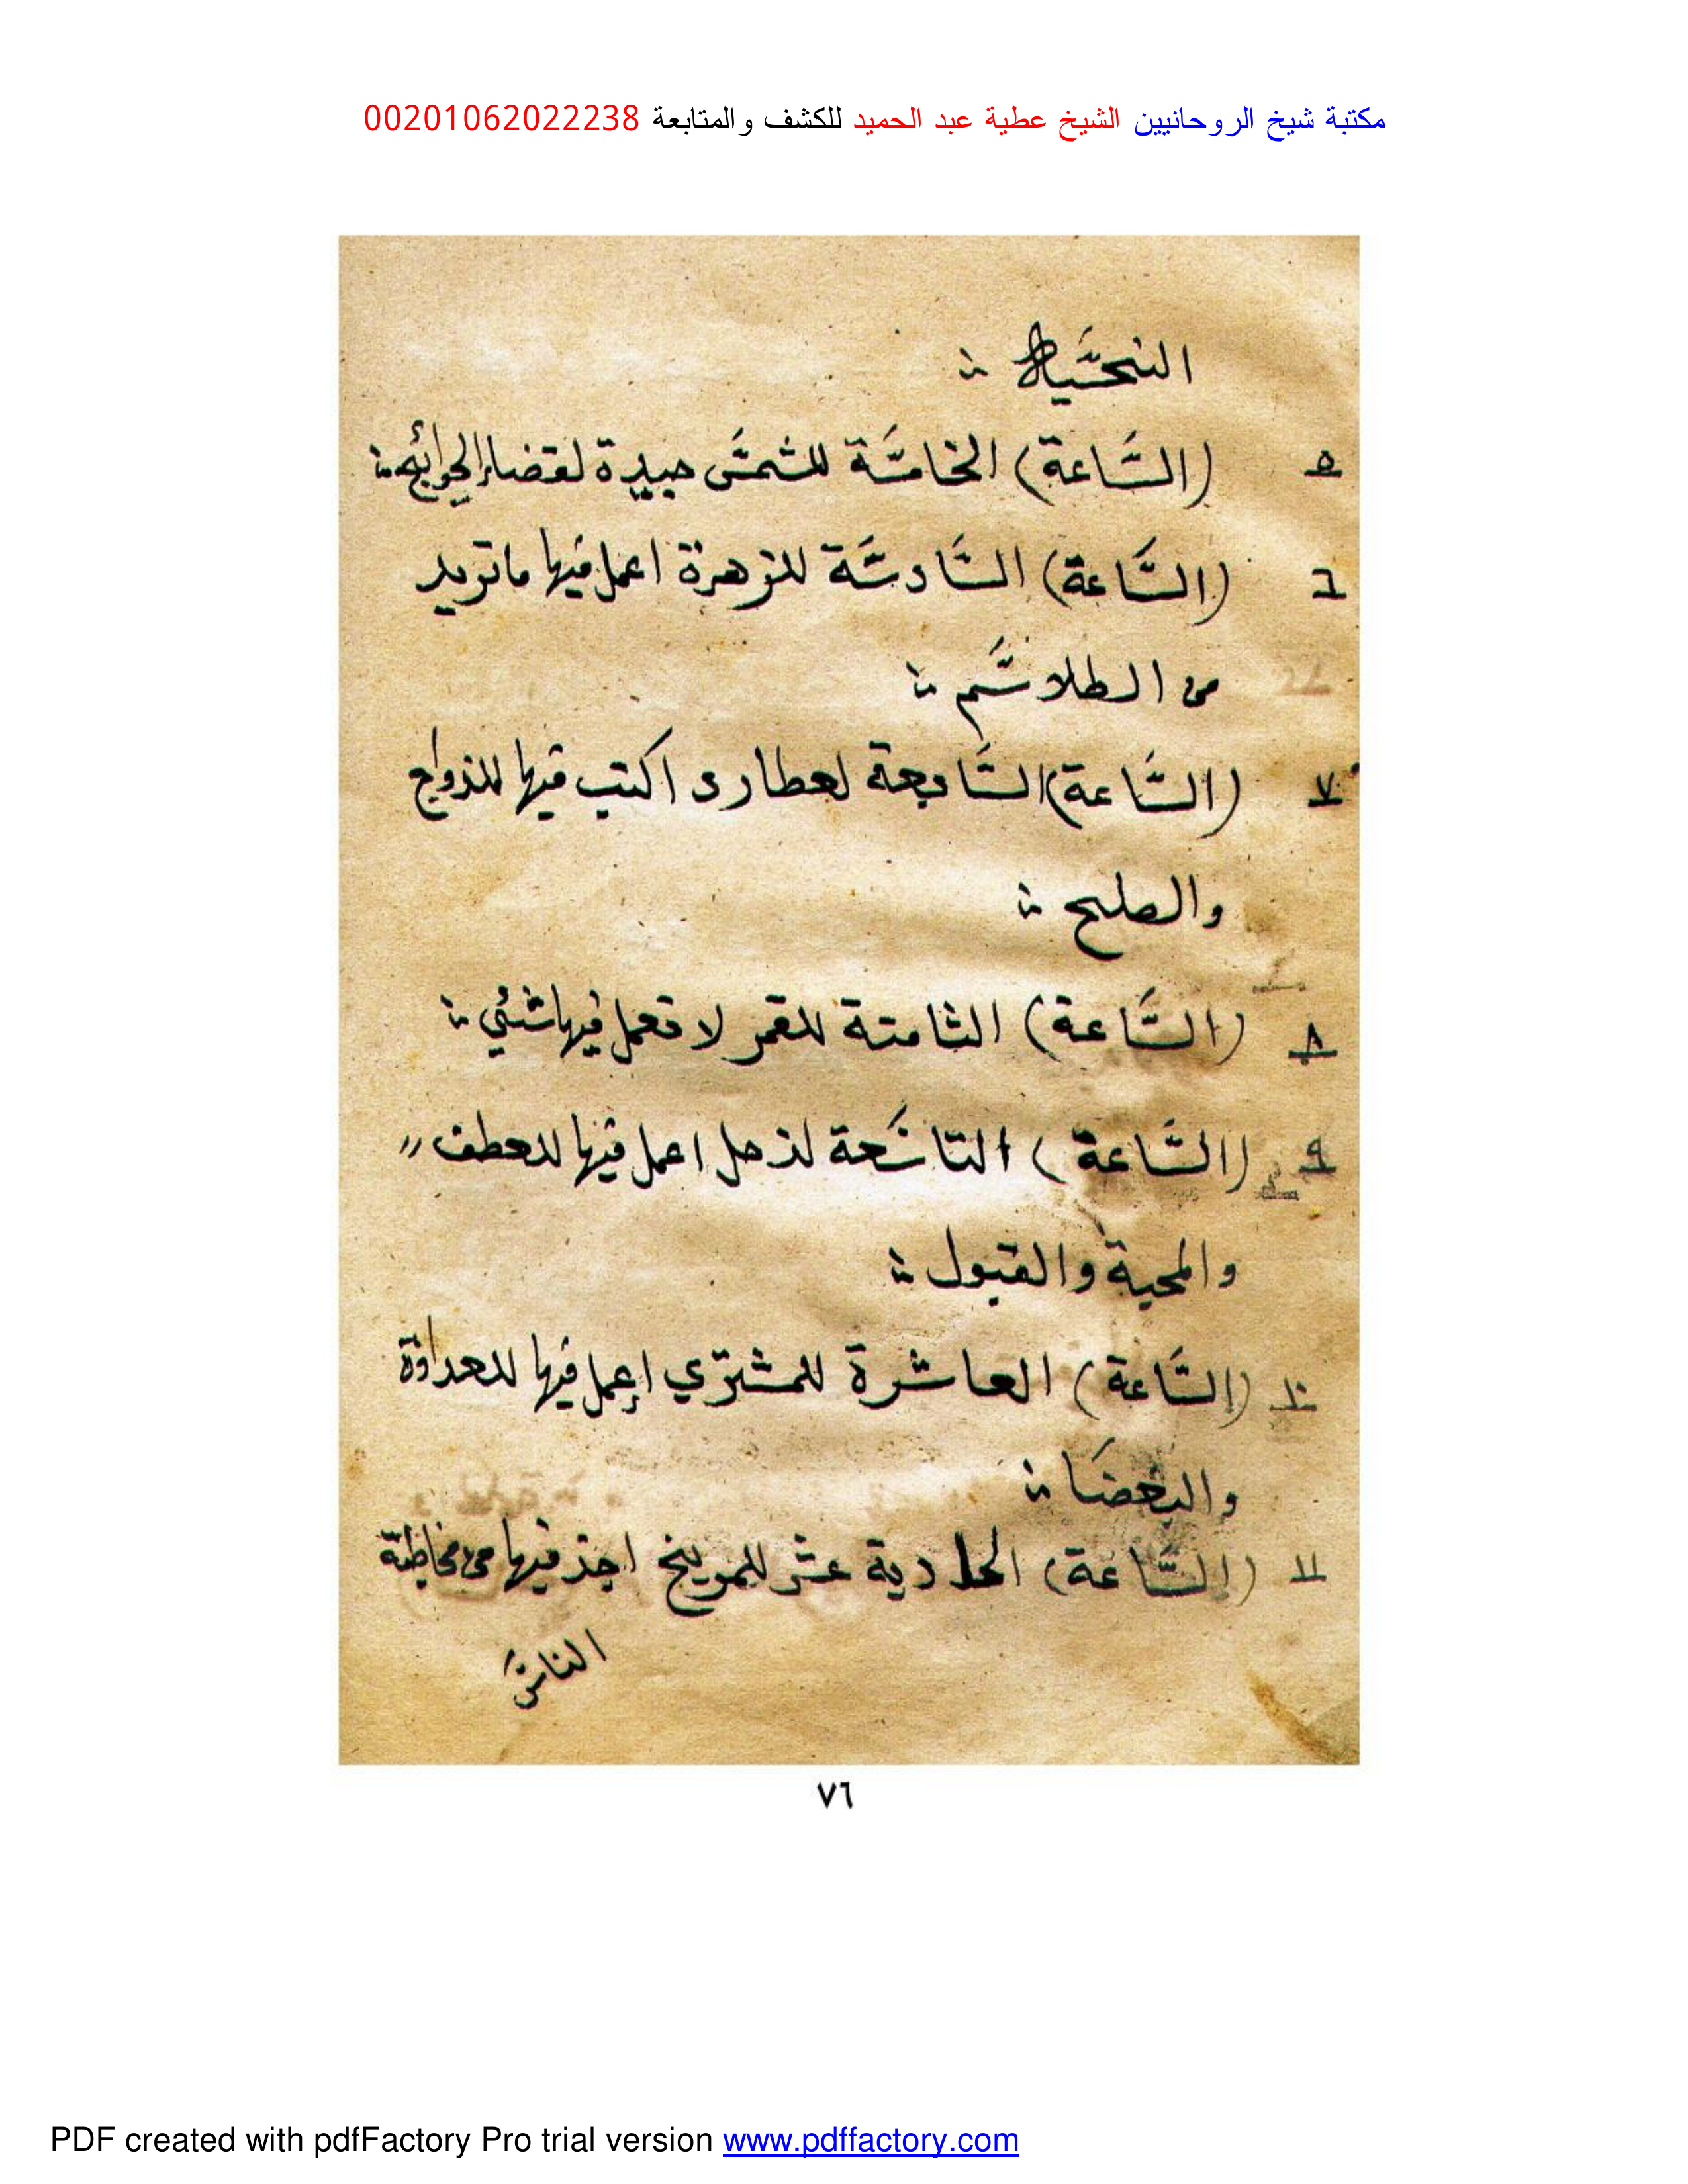 مكتبة شيخ الروحانيين الشيخ عطية عبد الحميد للكشف والمتابعة 00201062022238
٥ (السَّاعة) الخامسَّة للشمسَّ جيدة لقضاء الحوائج
٦ (السَّاعة) السَّادسَّة للزهرة اعمل فيها ما تريد
من الطلاسَّم
٧ (السَّاعة) السَّابعة لعطارد اكتب فيها للزواج
والصليح
٨ (السَّاعة) الثامنة للقمر لا تعمل فيها شئي
٩ (السَّاعة) التاسَعة لزحل اعمل فيها للعطف
والمحبة والقبول
١٠ (السَّاعة) العاشرة للمشتري إعمل فيها للعداوة
والبغضَا
١١ (السَّاعة) الحادية عشر للمريخ احذ فيها من مخاطبة
الناسَّ
٧٦
PDF created with pdfFactory Pro trial version www.pdffactory.com